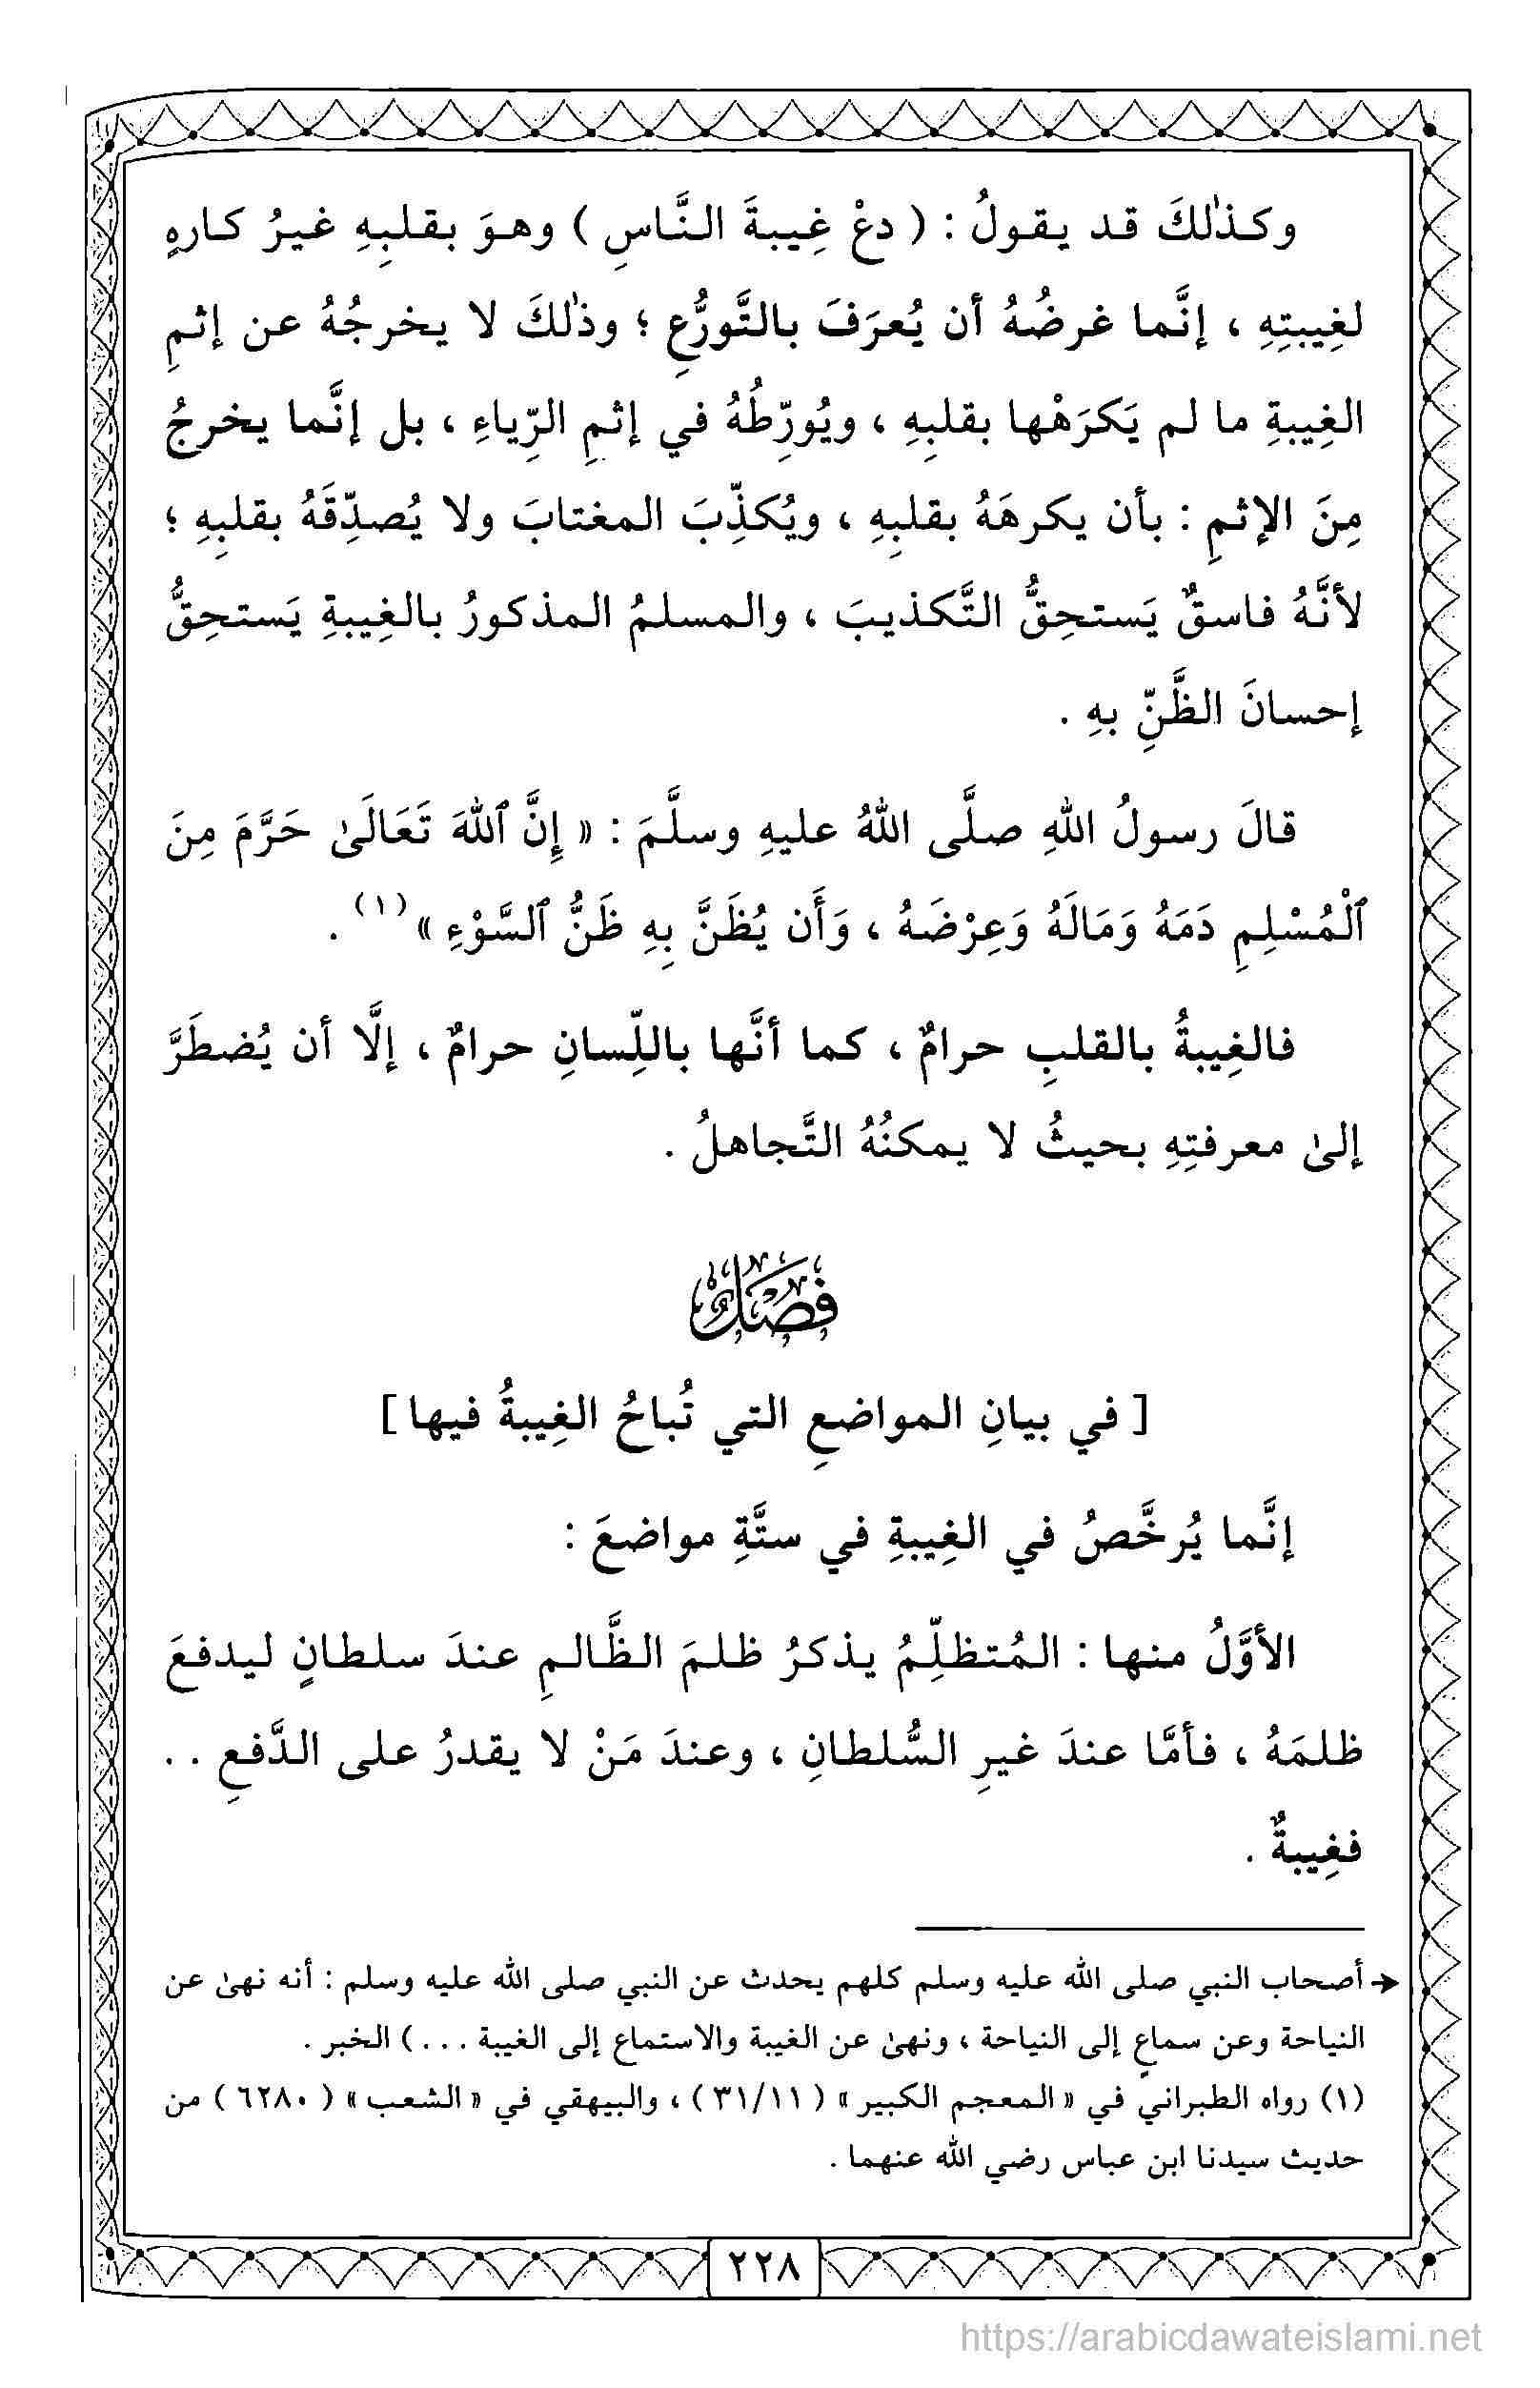 وكذٰلكَ قد يقولُ : ( دعْ غِيبةَ النَّاسِ ) وهوَ بقلبِهِ غيرُ كارهٍ
لغِيبتِهِ ، إنَّما غرضُهُ أن يُعرَفَ بالتَّورُّعِ ؛ وذٰلكَ لا يخرجُهُ عن إثمِ
الغِيبةِ ما لم يَكرَهْها بقلبِهِ ، ويُورِّطُهُ في إثمِ الرِّياءِ ، بل إنَّما يخرجُ
مِنَ الإثمِ : بأن يكرهَهُ بقلبِهِ ، ويُكذِّبَ المغتابَ ولا يُصدِّقَهُ بقلبِهِ ؛
لأنَّهُ فاسقٌ يَستحِقُّ التَّكذيبَ ، والمسلمُ المذكورُ بالغِيبةِ يَستحِقُّ
إحسانَ الظَّنِّ بهِ .
قالَ رسولُ اللهِ صلَّى اللهُ عليهِ وسلَّمَ : « إِنَّ ٱللهَ تَعَالَىٰ حَرَّمَ مِنَ
ٱلْمُسْلِمِ دَمَهُ وَمَالَهُ وَعِرْضَهُ ، وَأَن يُظَنَّ بِهِ ظَنُّ ٱلسَّوْءِ »(١) .
فالغِيبةُ بالقلبِ حرامٌ ، كما أنَّها باللِّسانِ حرامٌ ، إلَّا أن يُضطَرَّ
إلىٰ معرفتِهِ بحيثُ لا يمكنُهُ التَّجاهلُ .
فَصْلٌ
[ في بيانِ المواضعِ التي تُباحُ الغِيبةُ فيها ]
إنَّما يُرخَّصُ في الغِيبةِ في ستَّةِ مواضعَ :
الأوَّلُ منها : المُتظلِّمُ يذكرُ ظلمَ الظَّالمِ عندَ سلطانٍ ليدفعَ
ظلمَهُ ، فأمَّا عندَ غيرِ السُّلطانِ ، وعندَ مَنْ لا يقدرُ على الدَّفعِ . .
فغِيبةٌ .
→ أصحاب النبي صلى الله عليه وسلم كلهم يحدث عن النبي صلى الله عليه وسلم : أنه نهىٰ عن
النياحة وعن سماعٍ إلى النياحة ، ونهىٰ عن الغيبة والاستماع إلى الغيبة . . . ) الخبر .
(١) رواه الطبراني في « المعجم الكبير » ( ٣١/١١ ) ، والبيهقي في « الشعب » ( ٦٢٨٠ ) من
حديث سيدنا ابن عباس رضي الله عنهما .
٢٢٨
https://arabicdawateislami.net